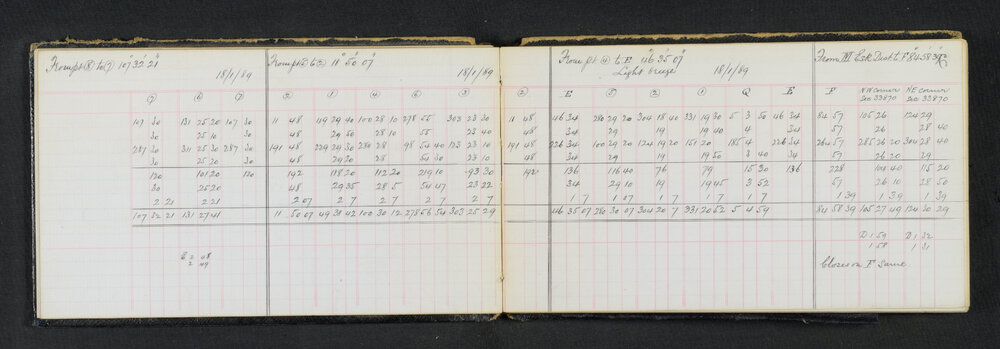 From pt ⑧ to ⑦ 107° 32' 21"
⑦ ⑥
107 30 131 25 20 107 30
30 25 10 30
287 30 311 25 30 287 30
30 25 20 30
120 101 20 120
30 25 20
2 21 2 21
107 32 21 131 27 41
From pt ③ to ② 11° 50' 07"
18/1/89
② ① ④ ⑥ ③ ②
11 48 119 29 40 100 28 10 278 55 303 23 30 11 48
48 29 50 28 10 55 23 40 48
191 48 229 29 30 280 28 98 54 40 123 23 10 191 48
48 29 30 28 54 30 23 10 48
192 118 20 112 20 219 10 93 30 192
48 29 35 28 5 54 47 23 22
2 07 2 7 2 7 2 7 2 7
11 50 07 49 31 42 100 30 12 278 56 54 303 25 29
From pt ④ to E 46° 35' 07"
Light breeze 18/1/89
E ⑤ ② ① Q E
46 34 280 29 20 304 18 40 331 19 30 5 3 50 46 34
34 29 19 19 40 4 34
226 34 100 29 20 124 19 20 151 20 185 4 226 34
34 29 19 19 50 3 40 34
136 116 40 76 79 15 30 136
34 29 10 19 19 45 3 52
1 7 1 07 1 7 1 7 1 7
46 35 07 280 30 07 304 20 7 331 20 52 5 4 59
From III Esk Dist to F 84° 58' 39"
F NW corner Sec 33870 NE corner Sec 33870
84 57 105 26 124 29
57 26 28 40
264 57 285 26 20 304 28 40
57 26 20 29
228 104 40 115 20
57 26 10 28 50
1 39 1 39 1 39
84 58 39 105 27 49 124 30 29
D 1 59 D 1 32
1 58 1 31
Closes on F same